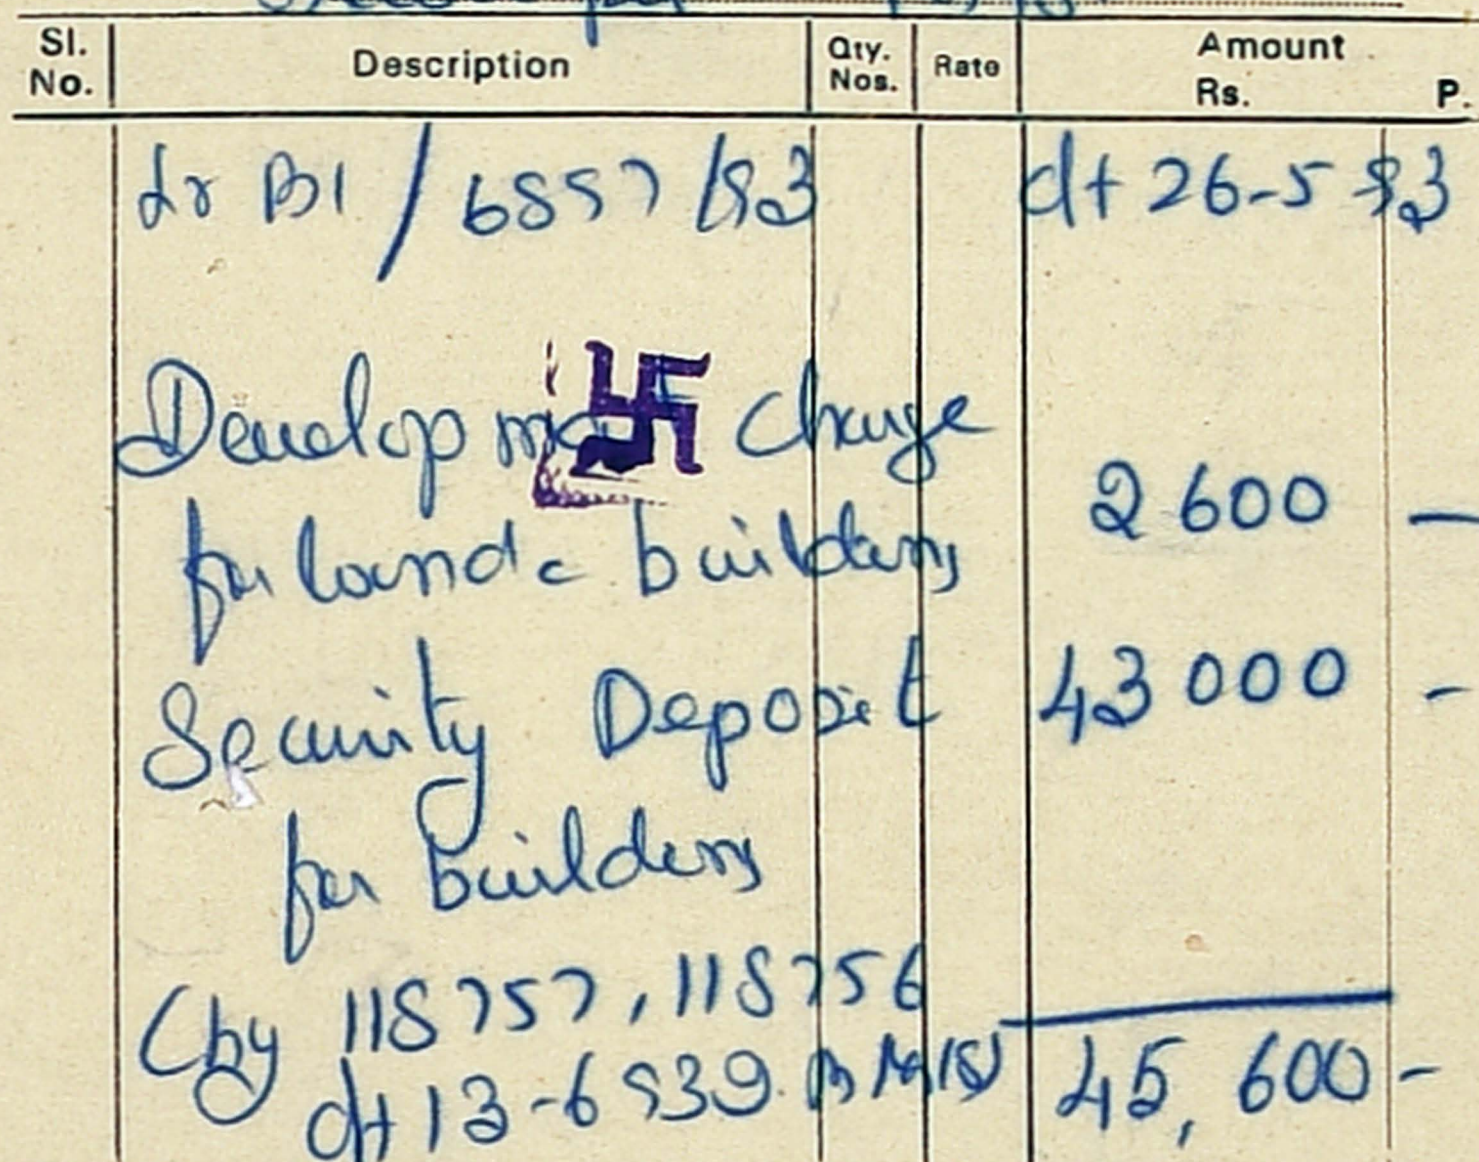 Sl. No. Description Qty. Nos. Rate Amount Rs. P.
Lr B1 / 6857 /83 dt 26-5-83
Development Charge
for land & building 2600 —
Security Deposit 43000 -
for building
Chq 118757, 118756
dt 13-6-83 45,600 -